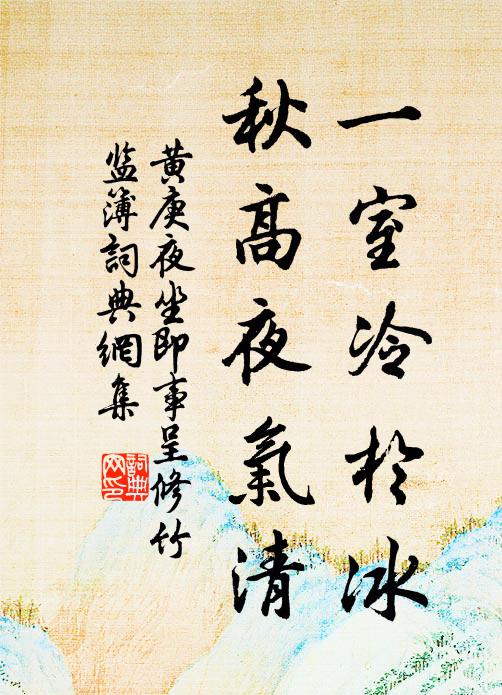 一室冷於冰
秋高夜氣清
黃庚夜坐即事呈修竹
监簿詞典網集
詞典网印